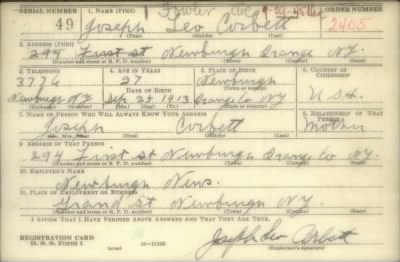 SERIAL NUMBER 1. NAME (Print) ORDER NUMBER
49 Joseph Leo Corbett 2405
(First) (Middle) (Last)
2. ADDRESS (Print)
295 First St Newburgh Orange N.Y.
(Number and street or R. F. D. number) (Town) (County) (State)
3. TELEPHONE 4. AGE IN YEARS 5. PLACE OF BIRTH 6. COUNTRY OF CITIZENSHIP
3776 27 Newburgh
Newburgh NY DATE OF BIRTH (Town or county) U.S.A.
Sep. 28 1913 Orange Co NY
(Exchange) (Number) (Mo.) (Day) (Yr.) (State or country)
7. NAME OF PERSON WHO WILL ALWAYS KNOW YOUR ADDRESS 8. RELATIONSHIP OF THAT PERSON
Joseph Corbett Mother
(Mr., Mrs., Miss) (First) (Middle) (Last)
9. ADDRESS OF THAT PERSON
294 First St Newburgh Orange Co N.Y.
(Number and street or R. F. D. number) (Town) (County) (State)
10. EMPLOYER'S NAME
Newburgh News.
11. PLACE OF EMPLOYMENT OR BUSINESS
Grand St Newburgh N.Y.
(Number and street or R. F. D. number) (Town) (County) (State)
I AFFIRM THAT I HAVE VERIFIED ABOVE ANSWERS AND THAT THEY ARE TRUE.
REGISTRATION CARD
D. S. S. Form 1 (over) 16-17105 Joseph Leo Corbett
(Registrant's signature)